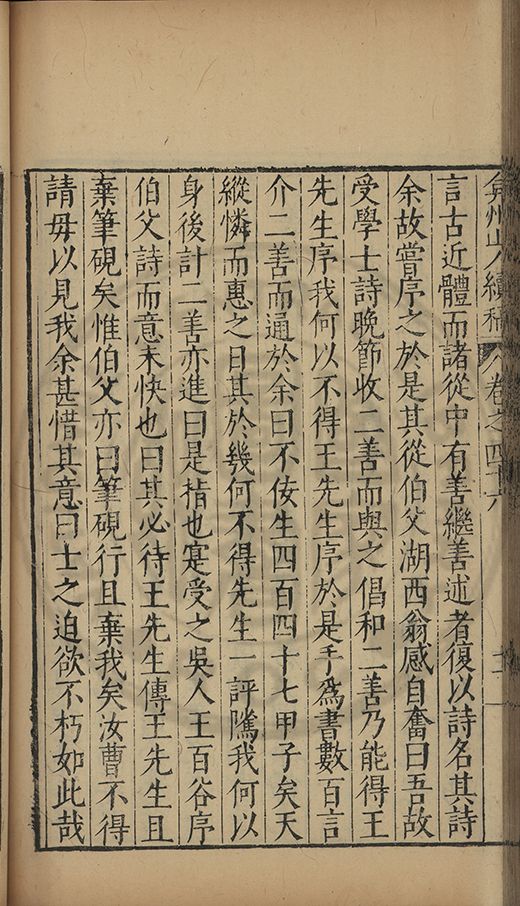 弇州山人續稿 卷之四十六
言古近體而諸從中有善繼善述者復以詩名其詩
余故嘗序之於是其從伯父湖西翁感自奮曰吾故
受學士詩晚節收二善而與之倡和二善乃能得王
先生序我何以不得王先生序於是手爲書數百言
介二善而通於余曰不佞生四百四十七甲子矣天
縱憐而惠之日其於幾何不得先生一評隲我何以
身後計二善亦進曰是楷也寔受之吳人王百谷序
伯父詩而意未快也曰其必待王先生傳王先生且
棄筆硯矣惟伯父亦曰筆硯行且棄我矣汝曹不得
請毋以見我余甚惜其意曰士之迫欲不朽如此哉